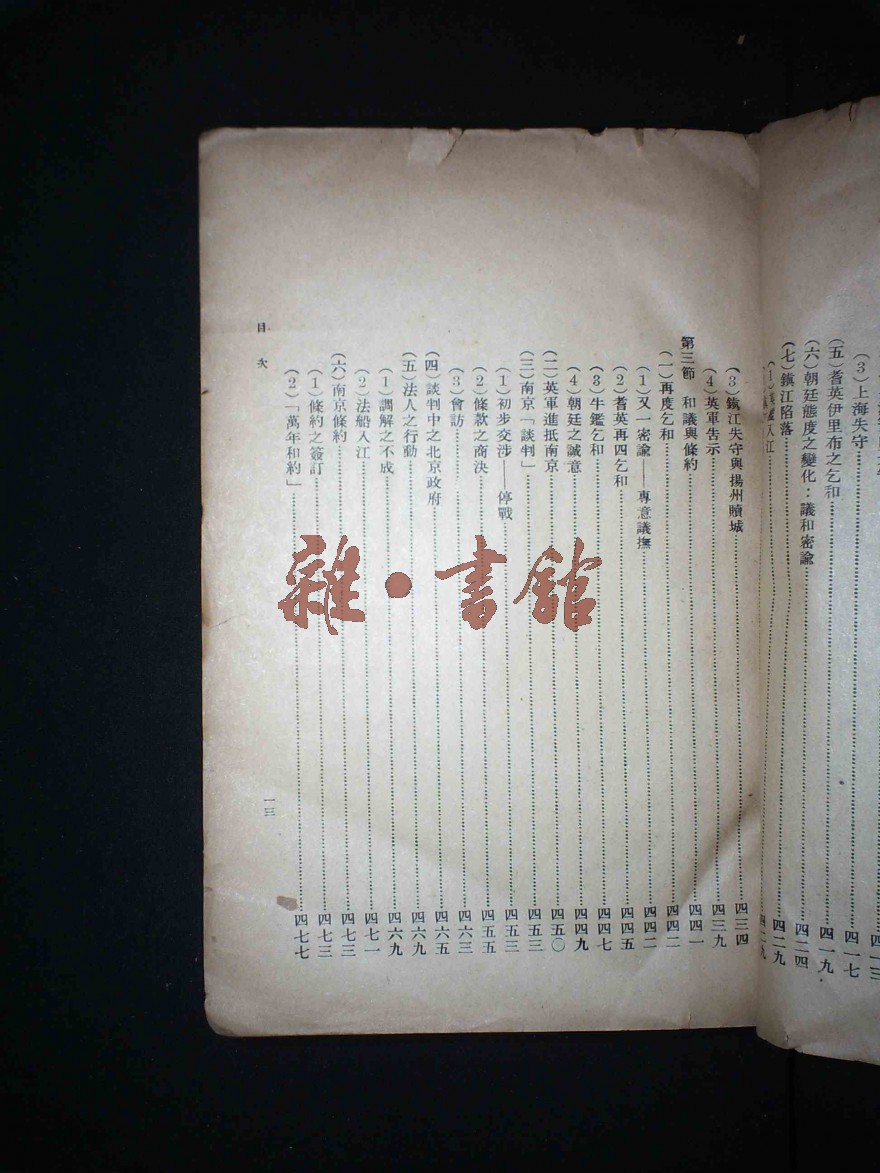 四一三
(3)上海失守……四一七
(五)耆英伊里布之乞和……四一九
(六)朝廷態度之變化：議和密諭……四二四
(七)鎮江陷落……四二九
入江……四二九
(3)鎮江失守與揚州贖城……四三四
(4)英軍告示……四三九
第三節 和議與條約……四四一
(一)再度乞和……四四二
(1)又一密諭——專意議撫……四四二
(2)耆英再四乞和……四四五
(3)牛鑑乞和……四四七
(4)朝廷之誠意……四四九
(二)英軍進抵南京……四五〇
(三)南京「談判」……四五三
(1)初步交涉——停戰……四五三
(2)條款之商決……四五五
(3)會訪……四六三
(四)談判中之北京政府……四六五
(五)法人之行動……四六九
(1)調解之不成……四六九
(2)法船入江……四七一
(六)南京條約……四七三
(1)條約之簽訂……四七三
(2)「萬年和約」……四七七
目次
一三
雜·書館